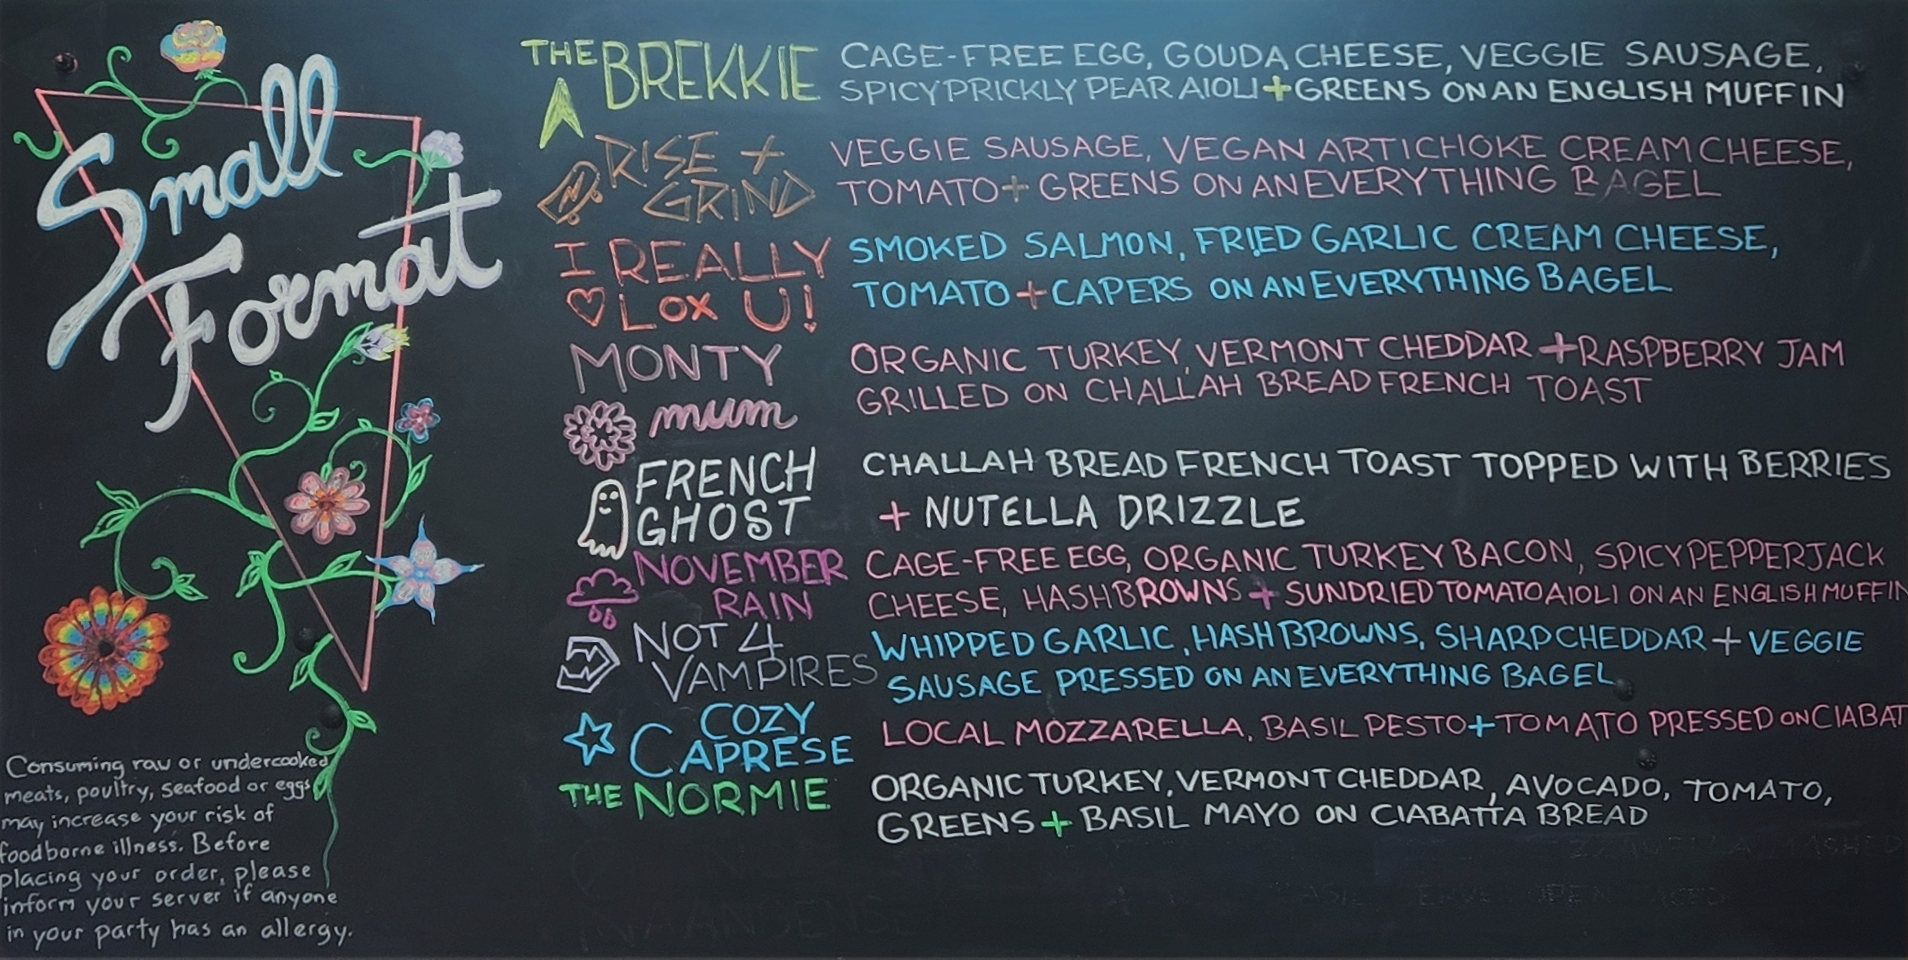 Small
Format
THE BREKKIE
CAGE-FREE EGG, GOUDA CHEESE, VEGGIE SAUSAGE,
SPICY PRICKLY PEAR AIOLI + GREENS ON AN ENGLISH MUFFIN
RISE +
GRIND
VEGGIE SAUSAGE, VEGAN ARTICHOKE CREAM CHEESE,
TOMATO + GREENS ON AN EVERYTHING BAGEL
I REALLY
LOX U!
SMOKED SALMON, FRIED GARLIC CREAM CHEESE,
TOMATO + CAPERS ON AN EVERYTHING BAGEL
MONTY
mum
ORGANIC TURKEY, VERMONT CHEDDAR + RASPBERRY JAM
GRILLED ON CHALLAH BREAD FRENCH TOAST
FRENCH
GHOST
CHALLAH BREAD FRENCH TOAST TOPPED WITH BERRIES
+ NUTELLA DRIZZLE
NOVEMBER
RAIN
CAGE-FREE EGG, ORGANIC TURKEY BACON, SPICY PEPPERJACK
CHEESE, HASHBROWNS + SUNDRIED TOMATO AIOLI ON AN ENGLISH MUFFIN
NOT 4
VAMPIRES
WHIPPED GARLIC, HASH BROWNS, SHARP CHEDDAR + VEGGIE
SAUSAGE PRESSED ON AN EVERYTHING BAGEL
COZY
CAPRESE
LOCAL MOZZARELLA, BASIL PESTO + TOMATO PRESSED ON CIABAT
THE NORMIE
ORGANIC TURKEY, VERMONT CHEDDAR, AVOCADO, TOMATO,
GREENS + BASIL MAYO ON CIABATTA BREAD
Consuming raw or undercooked
meats, poultry, seafood or eggs
may increase your risk of
foodborne illness. Before
placing your order, please
inform your server if anyone
in your party has an allergy.